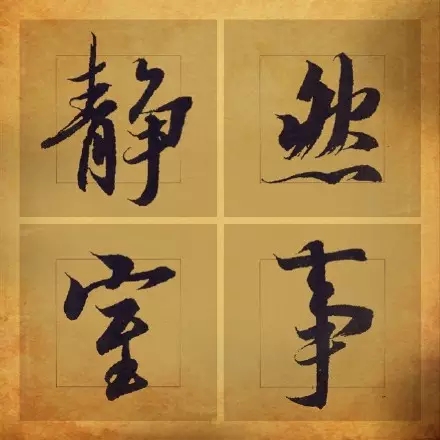 静然
室事